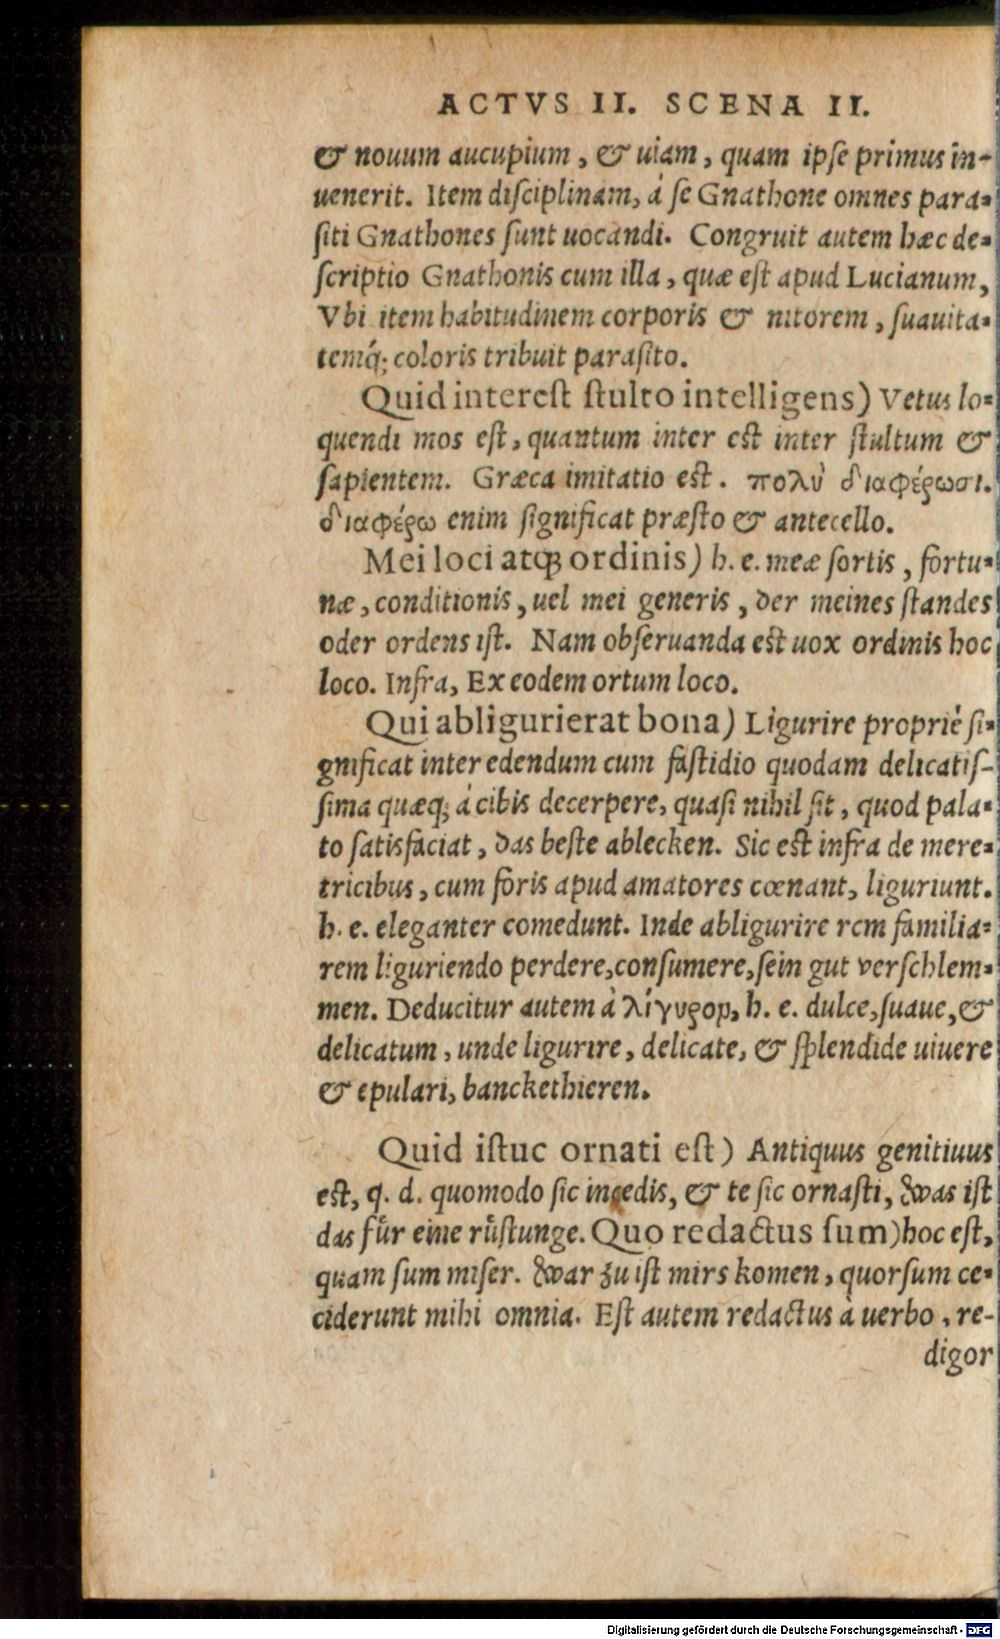 ACTVS II. SCENA II.
& nouum aucupium, & uiam, quam ipſe primus in-
uenerit. Item diſciplinam, á ſe Gnathone omnes para-
ſiti Gnathones ſunt uocandi. Congruit autem hæc de-
ſcriptio Gnathonis cum illa, quæ eſt apud Lucianum,
Vbi item habitudinem corporis & nitorem, ſuauita-
temq́; coloris tribuit paraſito.
Quid intereſt ſtulto intelligens) Vetus lo-
quendi mos eſt, quantum inter eſt inter ſtultum &
ſapientem. Græca imitatio eſt. πολὺ διαφέρωσι.
διαφέρω enim ſignificat præſto & antecello.
Mei loci atq; ordinis) h. e. meæ ſortis, fortu-
næ, conditionis, uel mei generis, der meines ſtandes
oder ordens iſt. Nam obſeruanda eſt uox ordinis hoc
loco. Infra, Ex eodem ortum loco.
Qui abligurierat bona) Ligurire propriè ſi-
gnificat inter edendum cum faſtidio quodam delicatiſ-
ſima quæq; à cibis decerpere, quaſi nihil ſit, quod pala-
to ſatisfaciat, das beſte ablecken. Sic eſt infra de mere-
tricibus, cum foris apud amatores cœnant, liguriunt.
h. e. eleganter comedunt. Inde abligurire rem familia-
rem liguriendo perdere, conſumere, ſein gut verſchlem-
men. Deducitur autem à λίγυρορ, h. e. dulce, ſuaue, &
delicatum, unde ligurire, delicate, & ſplendide uiuere
& epulari, banckethieren.
Quid iſtuc ornati eſt) Antiquus genitiuus
eſt, q. d. quomodo ſic incedis, & te ſic ornaſti, was iſt
das für eine rüſtunge. Quo redactus ſum) hoc eſt,
quam ſum miſer. war zu iſt mirs komen, quorſum ce-
ciderunt mihi omnia. Eſt autem redactus à uerbo, re-
digor
Digitalisierung gefördert durch die Deutsche Forschungsgemeinschaft - DFG